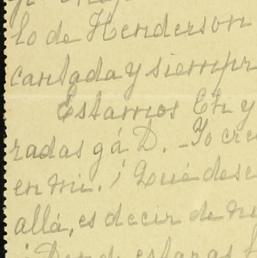 lo de Henderson
cantada y siempr
Estamos Eh y
radas gá D. - Yo cre
en mi. ¡ Qué dese
allá, es decir de nu
¡ Donde estaras t